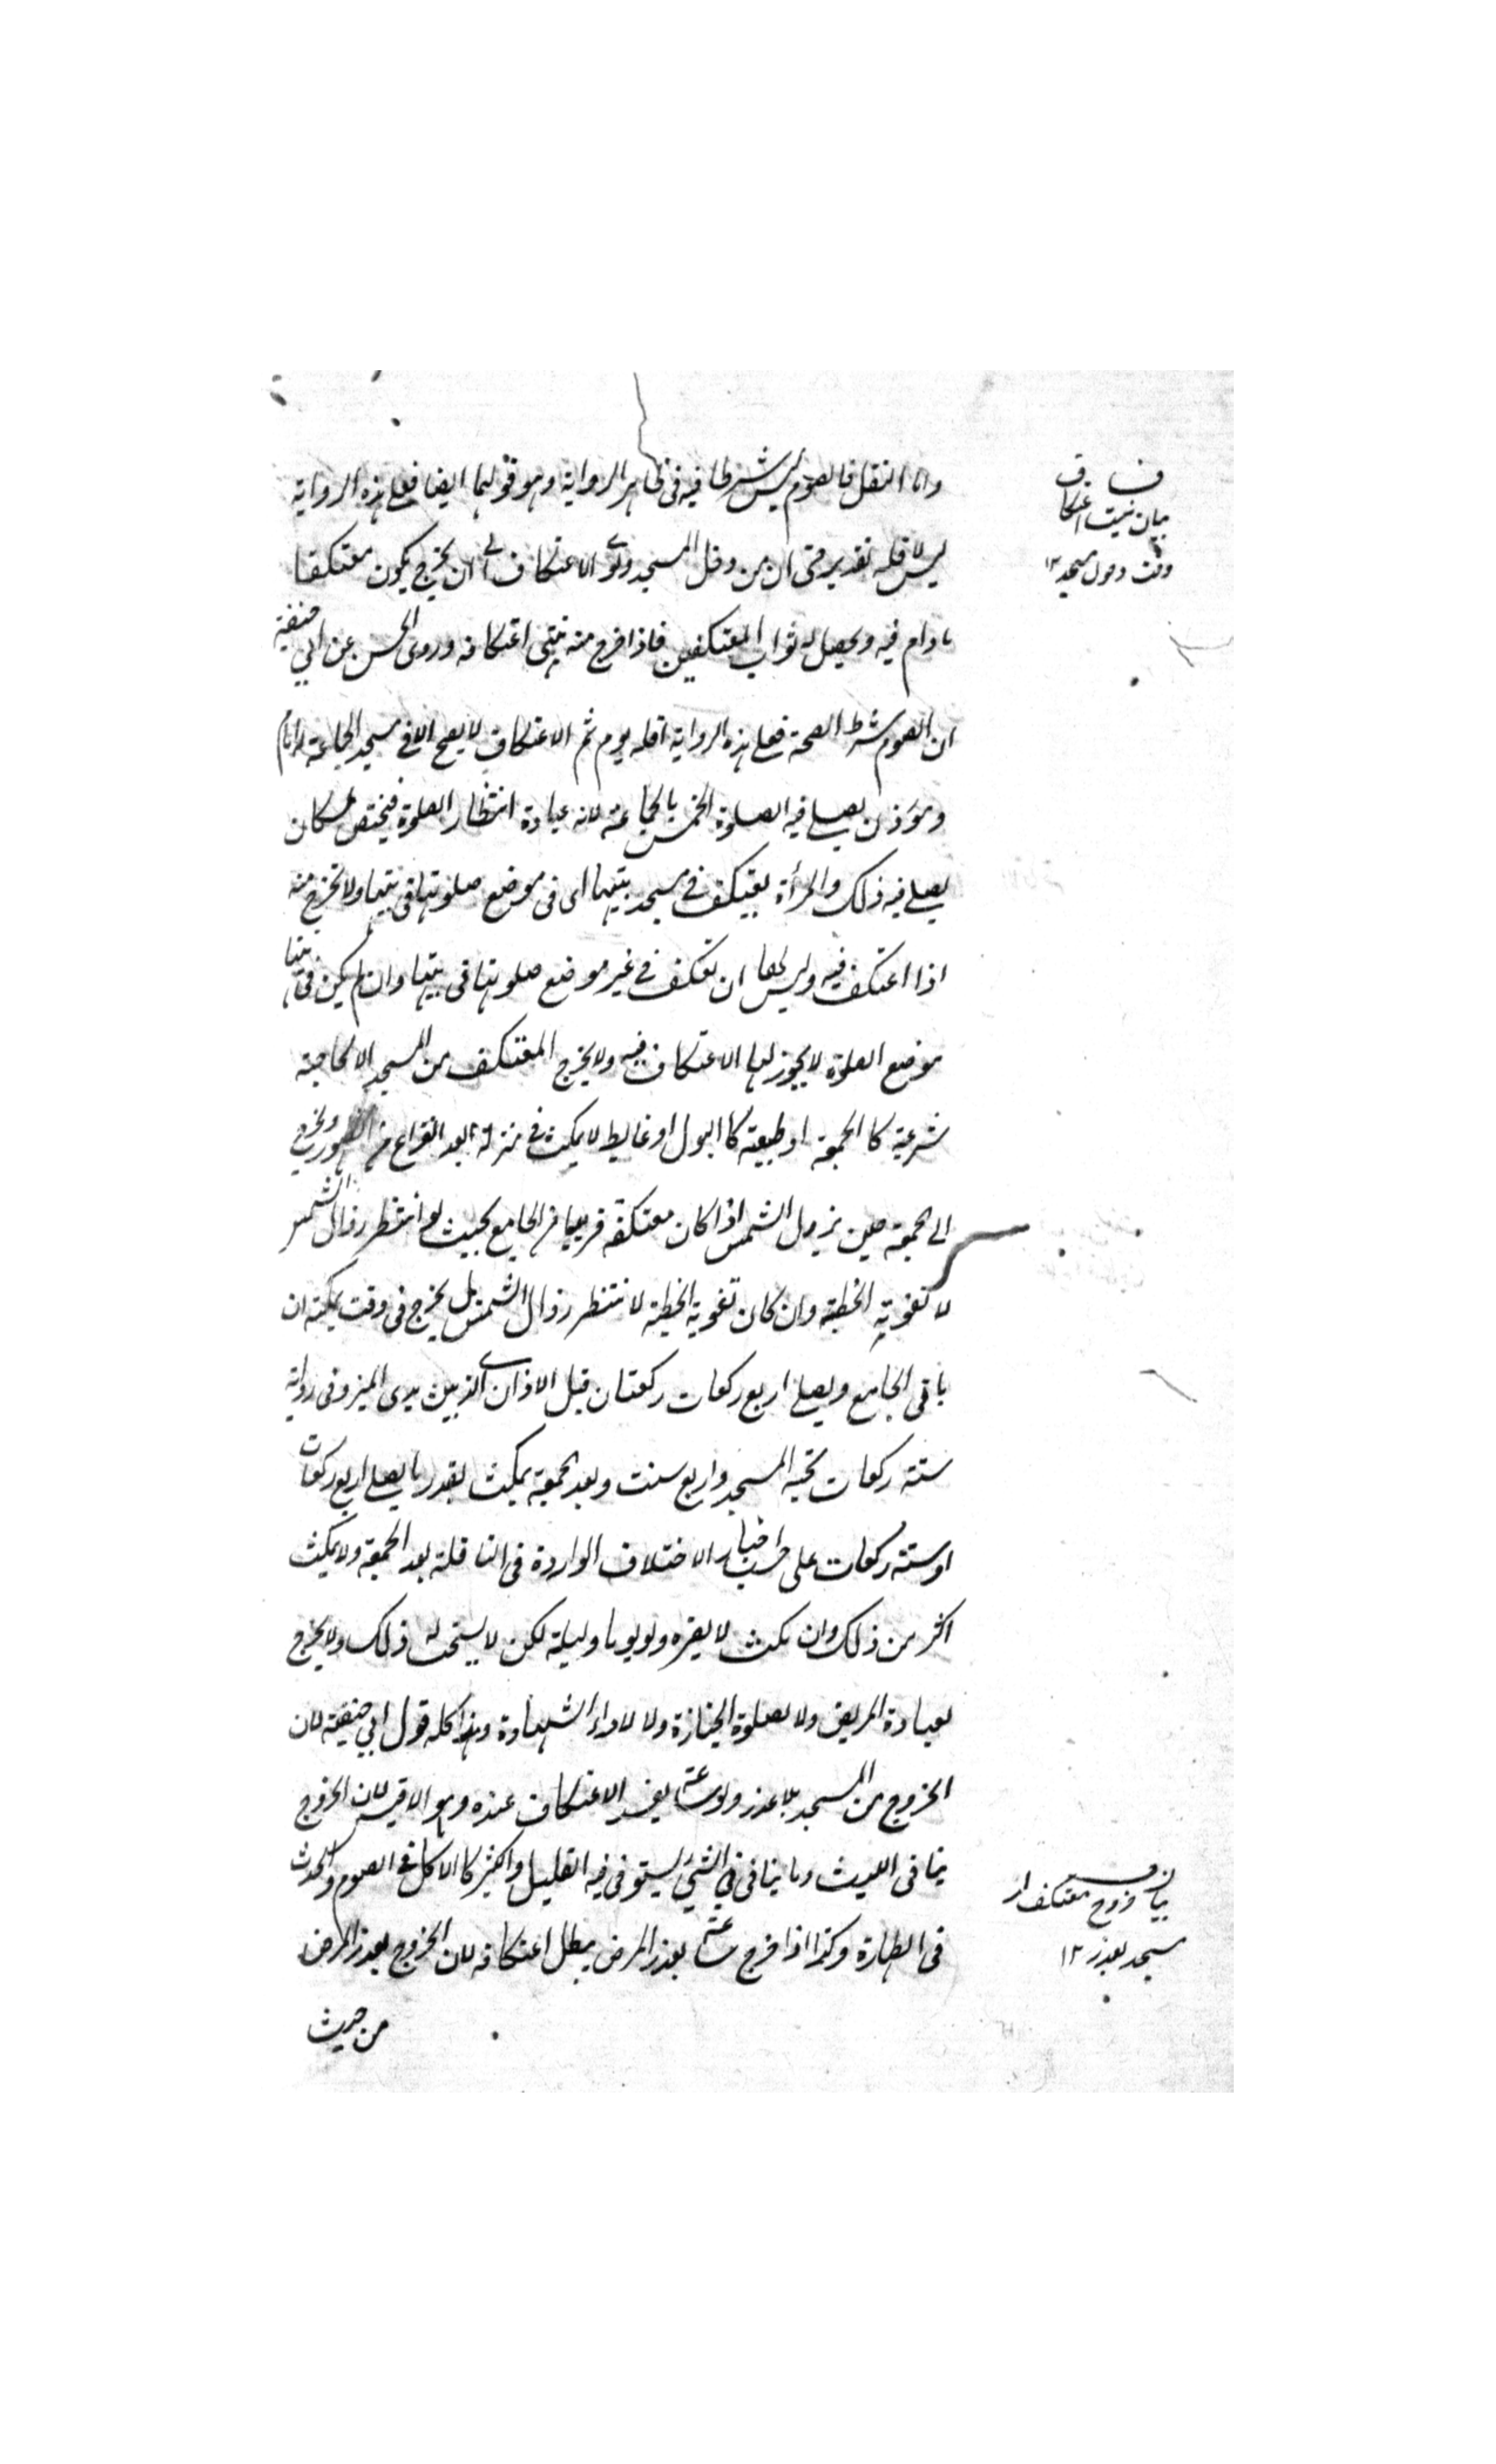 واما النفل فالصوم ليس شرطا فيه فى ظاهر الرواية وهو قولهما ايضا فعلى هذه الرواية
ليس لاقله تقدير حتى ان من دخل المسجد ونوى الاعتكاف الى ان يخرج يكون معتكفا
مادام فيه ويحصل له ثواب المعتكفين فاذا خرج منه ينتهى اعتكافه وروى الحسن عن ابي حنيفة
ان الصوم شرط الصحة فعلى هذه الرواية اقله يوم ثم الاعتكاف لا يصح الا فى مسجد الجماعة له امام
وموذن يصلى فيه الصلوة الخمس بالجماعة لانه عبادة انتظار الصلوة فيختص لمكان
يصلى فيه ذلك والمرأة يعتكف فى مسجد بيتها اى فى موضع صلوتها فى بيتها ولا تخرج منه
اذا اعتكف فيه وليس لها ان تعتكف فى غير موضع صلوتها فى بيتها وان لم يكن فى بيتها
موضع الصلوة لا يجوز لها الاعتكاف فيه ولا يخرج المعتكف من المسجد الا لحاجة
شرعية كا الجمعة او طبيعة كا البول او غايط لا يمكث فى منزله بعد الفراغ من الطهور ويخرج
الى الجمعة حين يزول الشمس اذا كان معتكفه قريبا من الجامع بحيث لو انتظر زوال الشمس
لا تفوته الخطبة وان كان تفوته الخطبة لا ننتظر زوال الشمس بل يخرج فى وقت يمكنه ان
ياتى الجامع ويصلى اربع ركعات ركعتان قبل الاذان الذى بين يدى المنبر وفى رواية
ستة ركعات تحية المسجد واربع سنت وبعد الجمعة يمكث بقدر ما يصلى اربع ركعات
او ستة ركعات على حسب اختيار الاختلاف الواردة فى النافلة بعد الجمعة ولا يمكث
اكثر من ذلك وان مكث لا يضره ولو يوما وليلة لكن لا يستحب له ذلك ولا يخرج
لعيادة المريض ولا لصلوة الجنازة ولا لاداء الشهادة وهذا كله قول ابي حنيفة لان
الخروج من المسجد بلا عذر ولو ساعة يفسد الاعتكاف عنده وهو الاقيس لان الخروج
ينافى اللبث وما ينافى الشئ يستوى فيه القليل والكثير كا الاكل فى الصوم والحدث
فى الطهارة وكذا اذا خرج ساعة بعذر المرض يبطل اعتكافه لان الخروج بعذر المرض
من حيث
ف
بيان نيت اعتكاف
وقت دخول مسجد ١٢
بيان خروج معتكف از
مسجد بعذر ١٢